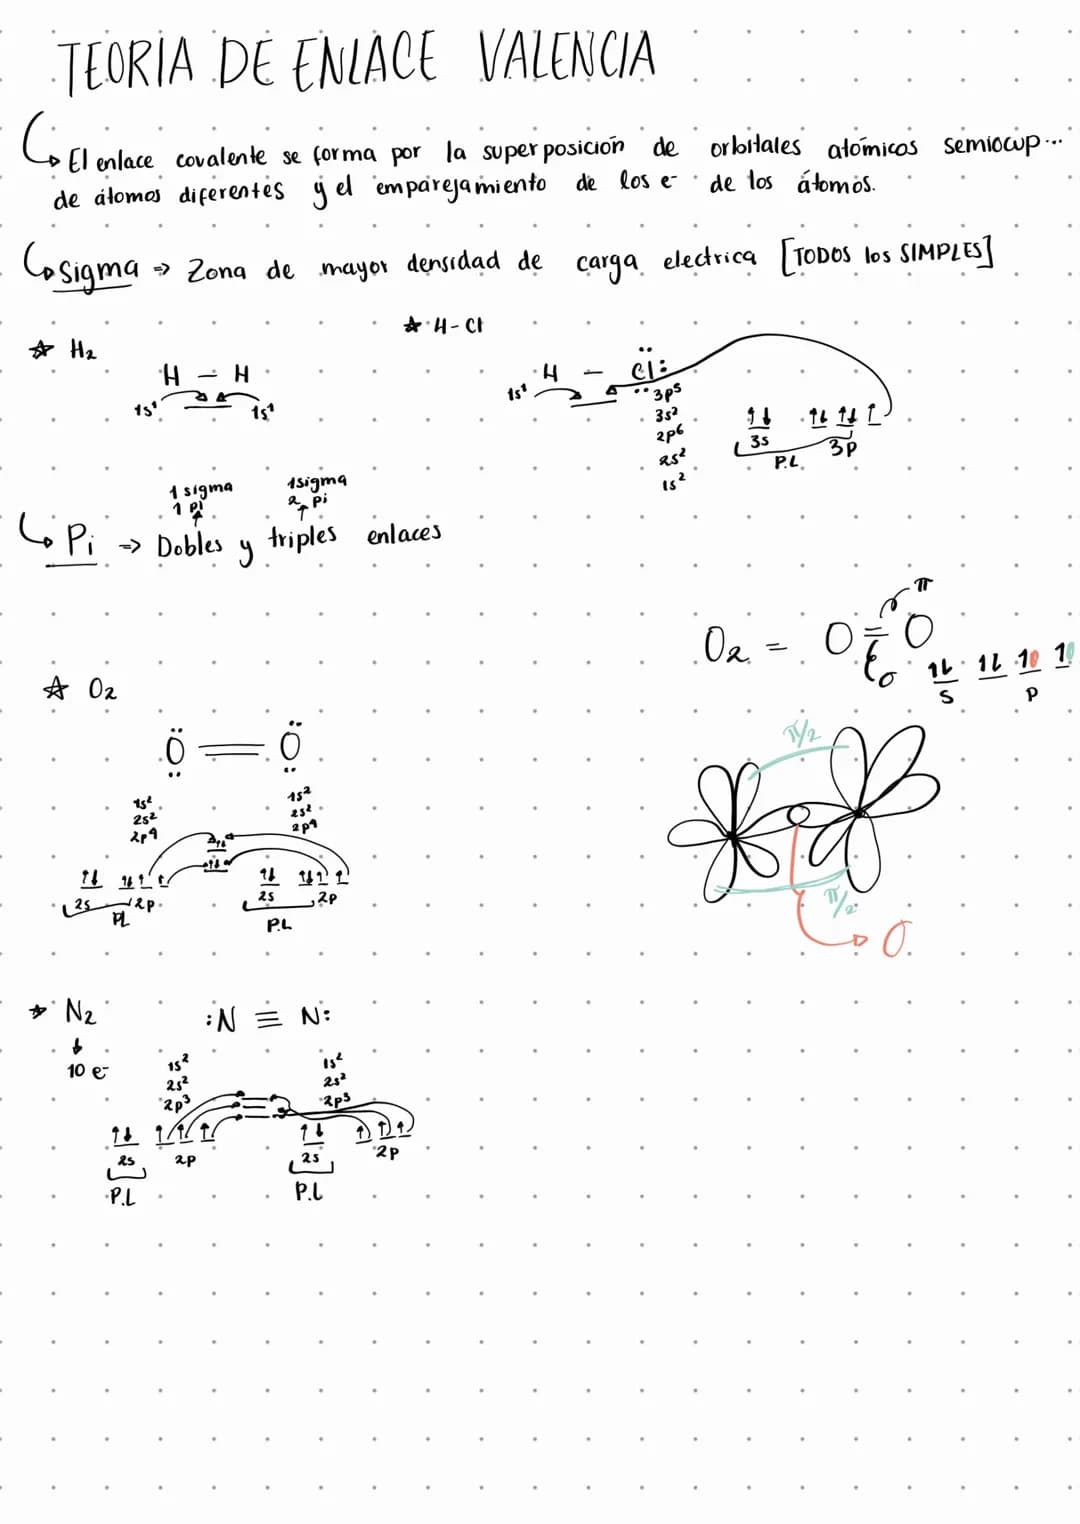 TEORIA DE ENLACE VALENCIA
El enlace covalente se forma por la superposición de orbitales atómicos semiocup...
de átomos diferentes y el emparejamiento de los e- de los átomos.
Sigma => Zona de mayor densidad de carga electrica [TODOS los SIMPLES]
☆ H2
H - H
1s¹ 1s¹
☆ H-Cl
H - Cl:
1s¹
3p5
3s²
2p6
2s²
1s²
↑↓ ↑↓ ↑↓ ↑
3s 3p
P.L.
1 sigma 1sigma
1 pi 2 pi
Pi => Dobles y triples enlaces
O2 = O = O
π
σ
↑↓ ↑↓ ↑ ↑
s p
☆ O2
Ö = Ö
1s² 1s²
2s² 2s²
2p4 2p4
↑↓ ↑↓ ↑ ↑ ↑↓ ↑↓ ↑ ↑
2s 2p 2s 2p
PL P.L
π/2
π/2
σ
☆ N2
10 e-
:N ≡ N:
1s² 1s²
2s² 2s²
2p3 2p3
↑↓ ↑ ↑ ↑ ↑↓ ↑ ↑ ↑
2s 2p 2s 2p
P.L P.L